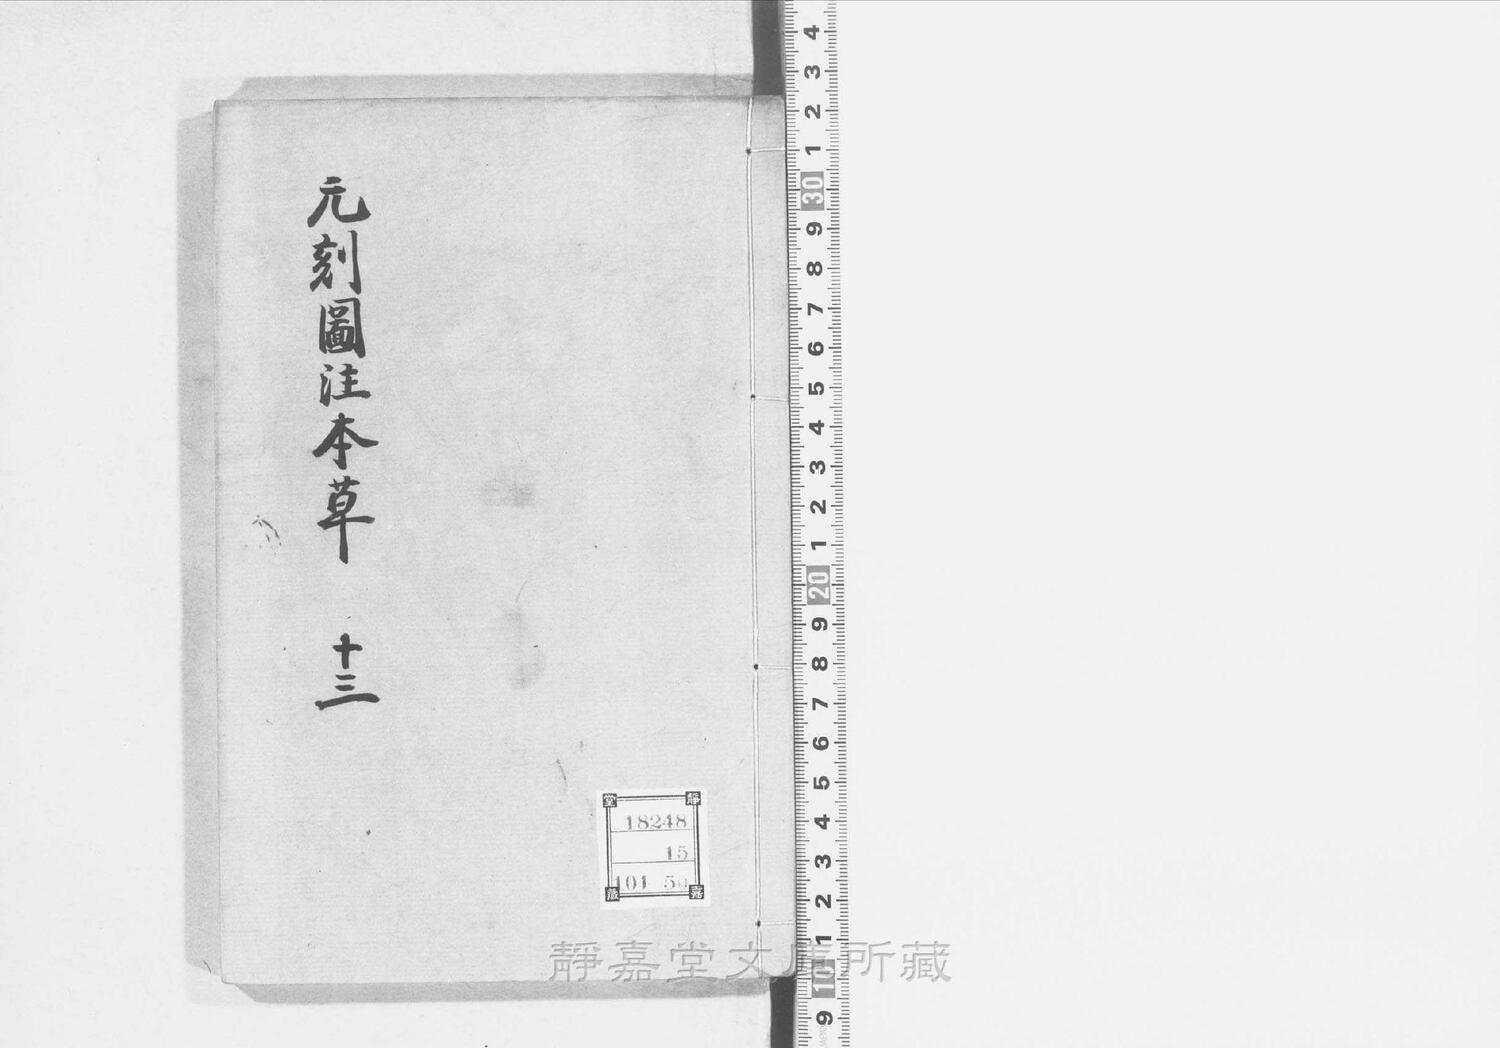 元刻圖注本草 十三
靜 嘉 堂 藏
18248
15
101
靜嘉堂文庫所藏
4
3
2
1
30
9
8
7
6
5
4
3
2
1
20
9
8
7
6
5
4
3
2
1
10
9